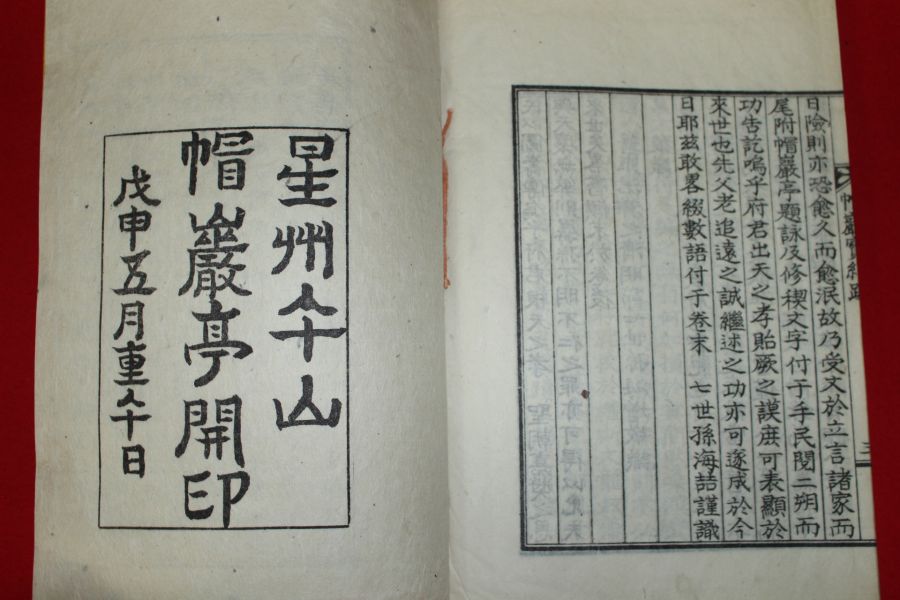 日險則亦恐愈久而愈泯故乃受文於立言諸家而
尾附帽巖亭題詠及修禊文字付于手民閱二朔而
功告訖嗚乎府君出天之孝貽厥之謨庶可表顯於
來世也先父老追遠之誠繼述之功亦可遂成於今
日耶玆敢畧綴數語付于卷末 七世孫海喆謹識
星州伞山
帽巖亭開印
戊申五月重午日